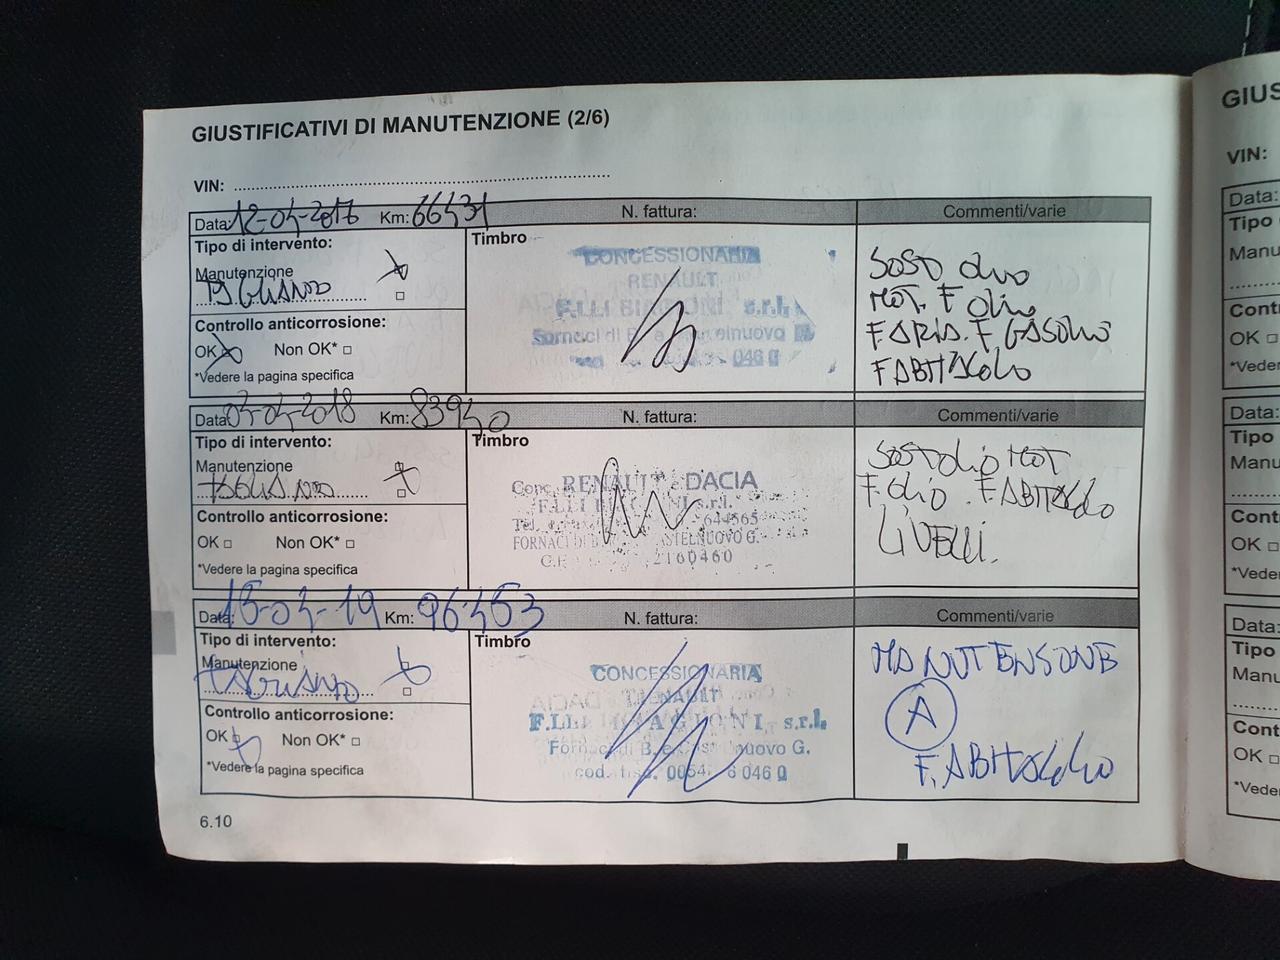 GIUSTIFICATIVI DI MANUTENZIONE (2/6)
VIN:
Data: 12-04-2017 Km: 66431 N. fattura: Commenti/varie
Tipo di intervento:
Manutenzione
TAGLIANDO
Controllo anticorrosione:
OK Non OK*
*Vedere la pagina specifica
Timbro
CONCESSIONARIA
RENAULT
F.LLI s.r.l.
Fornaci di B. e
046 0
SOST OLIO
MOT. F OLIO
F ARIA. F GASOLIO
F ABITACOLO
Data: 04-2018 Km: 83940 N. fattura: Commenti/varie
Tipo di intervento:
Manutenzione
TAGLIANDO
Controllo anticorrosione:
OK Non OK*
*Vedere la pagina specifica
Timbro
Conc. RENAULT - DACIA
F.LLI s.r.l.
Tel. 644565
FORNACI DI CASTELNUOVO G.
2160460
SOST OLIO MOT
F. OLIO. F ABITACOLO
LIVELLI.
Data: 15-04-19 Km: 96453 N. fattura: Commenti/varie
Tipo di intervento:
Manutenzione
TAGLIANDO
Controllo anticorrosione:
OK Non OK*
*Vedere la pagina specifica
Timbro
CONCESSIONARIA
RENAULT
F.LLI BIAGIONI s.r.l.
Fornaci di B. e Cast nuovo G.
cod. fisc. 046 0
MANUTENSONE
A
F. ABITACOLO
6.10
GIUS
VIN:
Data:
Tipo
Manu
Cont
OK
*Vede
Data:
Tipo
Manu
Cont
OK
*Vede
Data:
Tipo
Manu
Cont
OK
*Vede